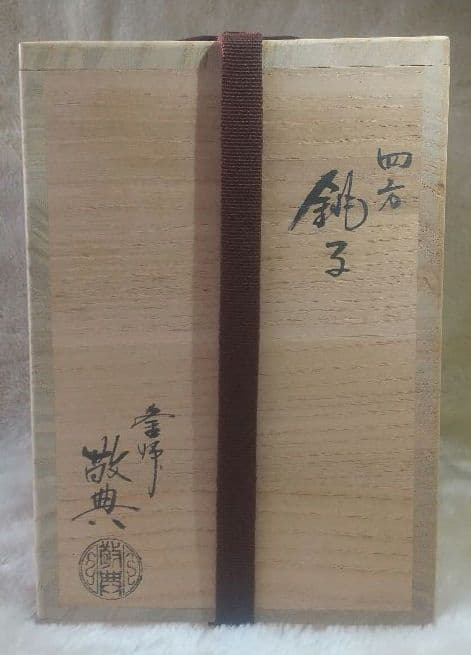 四方
銚子
釜師
敬典
敬典